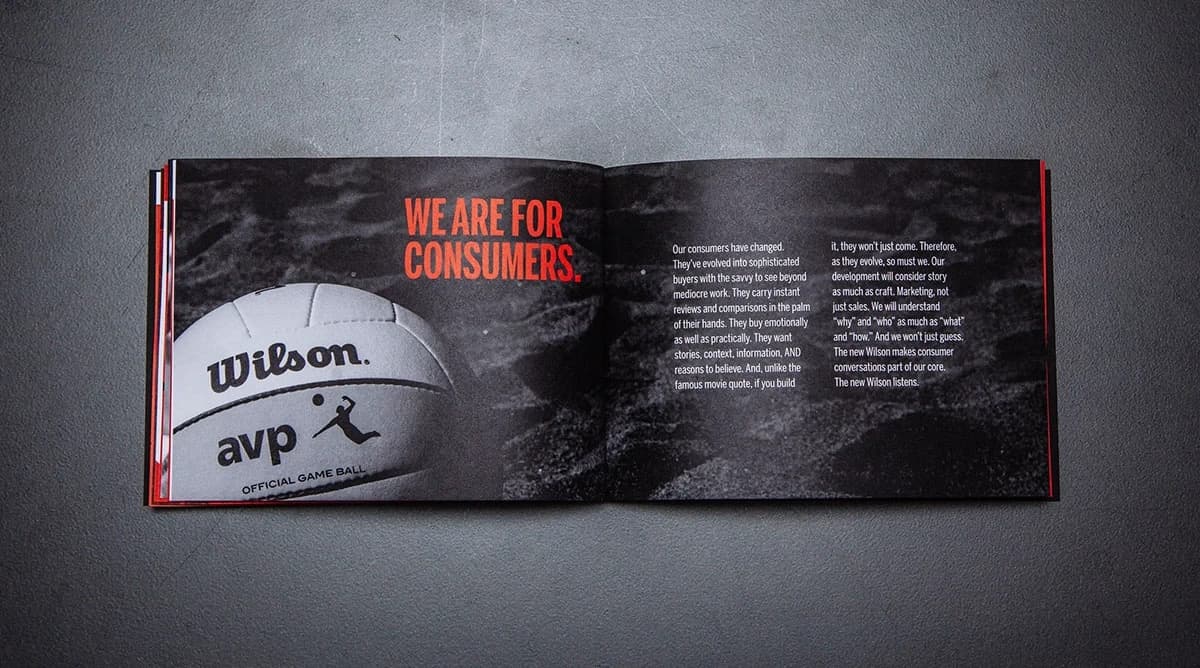 WE ARE FOR
CONSUMERS.
Wilson.
avp
OFFICIAL GAME BALL
Our consumers have changed.
They’ve evolved into sophisticated
buyers with the savvy to see beyond
mediocre work. They carry instant
reviews and comparisons in the palm
of their hands. They buy emotionally
as well as practically. They want
stories, context, information, AND
reasons to believe. And, unlike the
famous movie quote, if you build
it, they won’t just come. Therefore,
as they evolve, so must we. Our
development will consider story
as much as craft. Marketing, not
just sales. We will understand
“why” and “who” as much as “what”
and “how.” And we won’t just guess.
The new Wilson makes consumer
conversations part of our core.
The new Wilson listens.